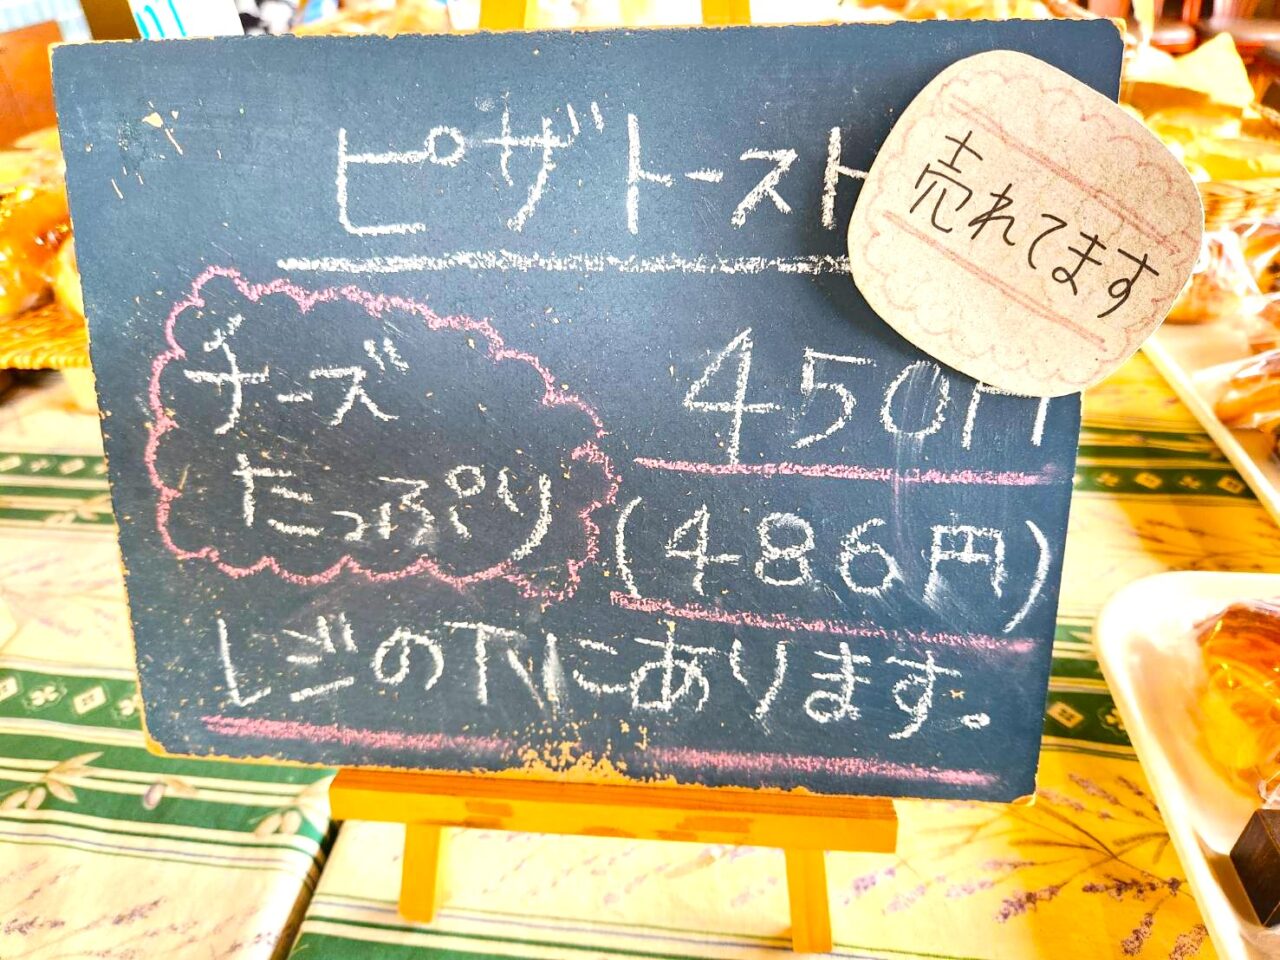 ピザトースト
売れてます
チーズ
たっぷり
450円
(486円)
レジの下にあります。